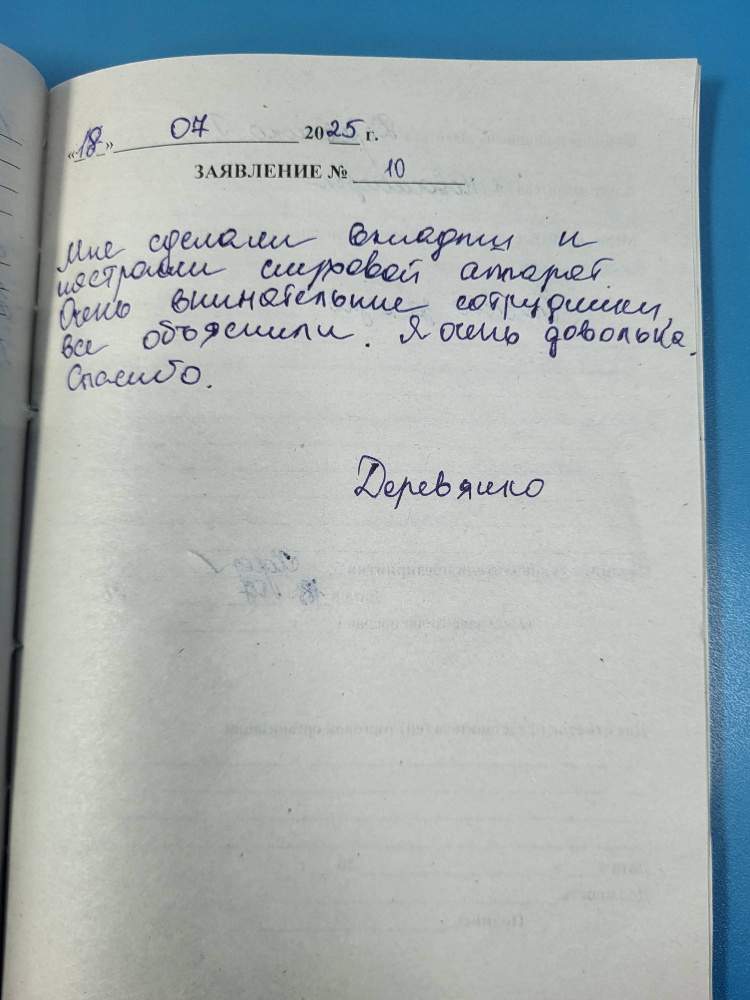 «18» 07 2025 г.
ЗАЯВЛЕНИЕ № 10
Мне сделали вкладыш и
настроили слуховой аппарат.
Очень внимательные сотрудники,
все объяснили. Я очень довольна.
Спасибо.
Деревяшко